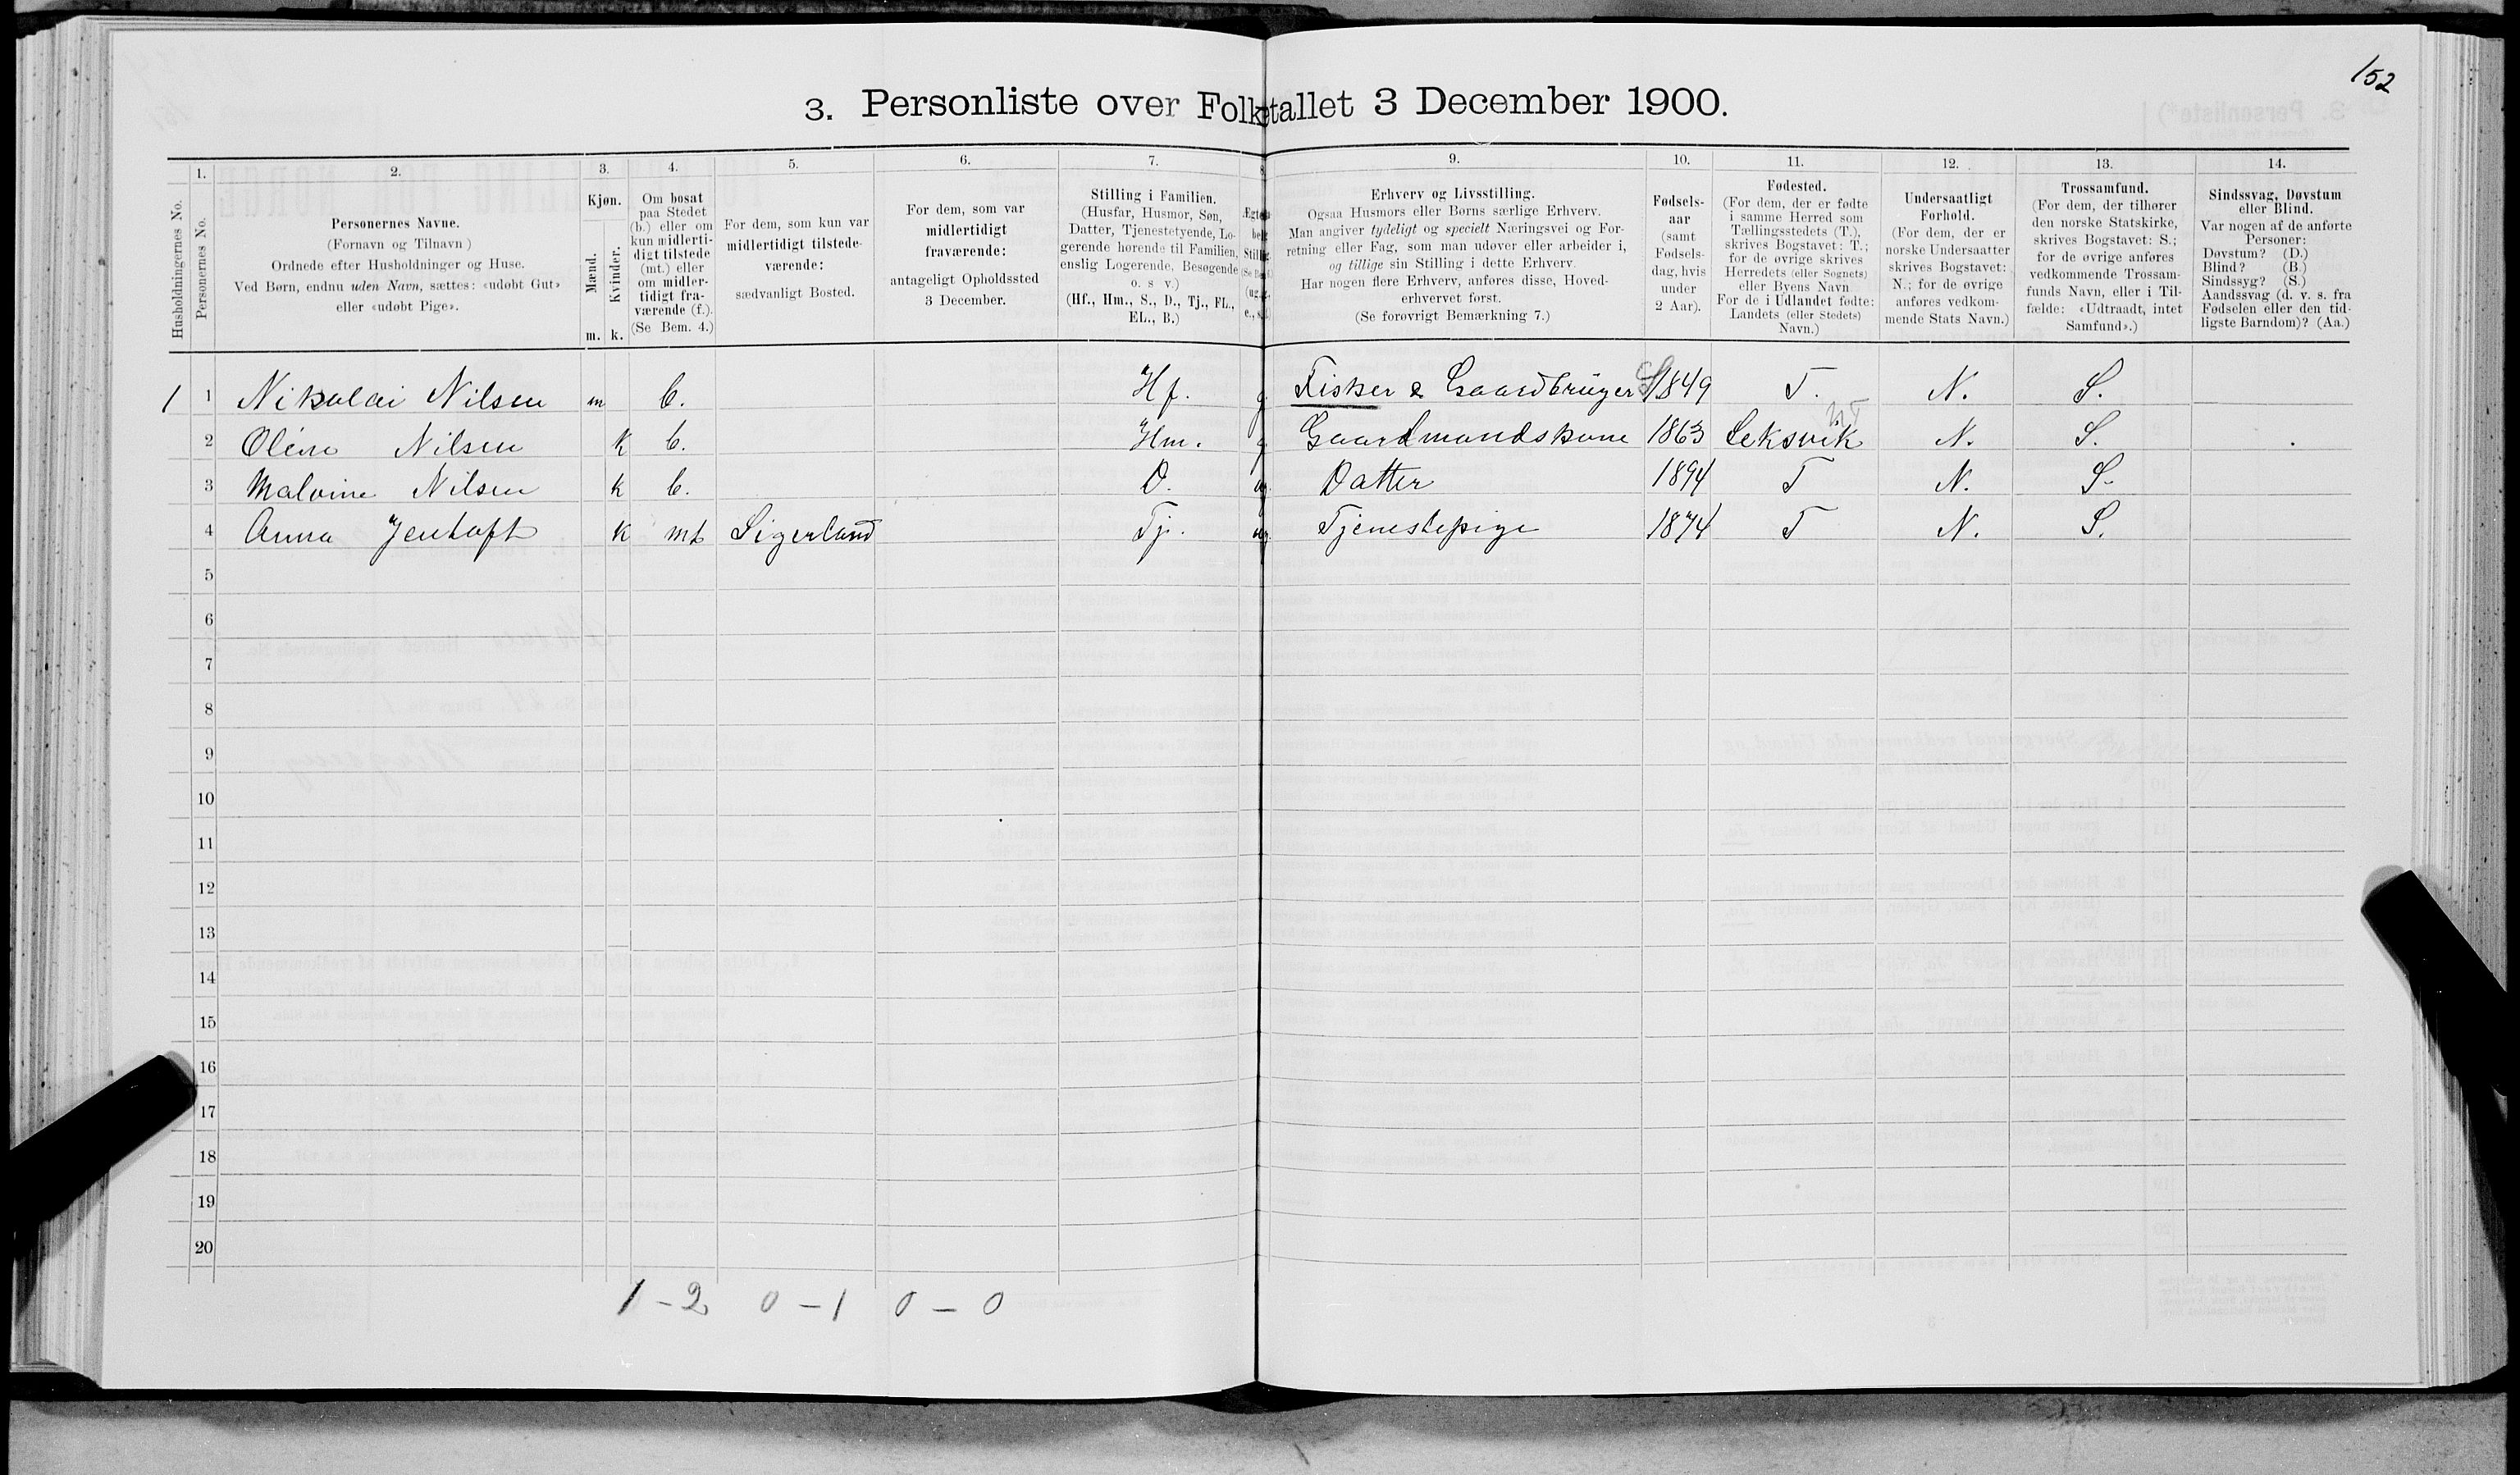 152
3. Personliste over Folketallet 3 December 1900.
1. 2. 3. 4. 5. 6. 7. 8. 9. 10. 11. 12. 13. 14.
Husholdningernes No.
Personernes No.
Personernes Navne.
(Fornavn og Tilnavn)
Ordnede efter Husholdninger og Huse.
Ved Børn, endnu uden Navn, sættes: «udøbt Gut»
eller «udøbt Pige».
Kjøn.
Mænd.
Kvinder.
m. k.
Om bosat
paa Stedet
(b.) eller om
kun midlerti-
digt tilstede
(mt.) eller
om midler-
tidigt fra-
værende (f.).
(Se Bem. 4.)
For dem, som kun var
midlertidigt tilstede-
værende:
sædvanligt Bosted.
For dem, som var
midlertidigt
fraværende:
antageligt Opholdssted
3 December.
Stilling i Familien.
(Husfar, Husmor, Søn,
Datter, Tjenestetyende, Lo-
gerende hørende til Familien,
enslig Logerende, Besøgende
o. s v.)
(Hf., Hm., S., D., Tj., FL.,
EL., B.)
Erhverv og Livsstilling.
Ogsaa Husmors eller Børns særlige Erhverv.
Man angiver tydeligt og specielt Næringsvei og For-
retning eller Fag, som man udøver eller arbeider i,
og tillige sin Stilling i dette Erhverv.
Har nogen flere Erhverv, anføres disse, Hoved-
erhvervet først.
(Se forøvrigt Bemærkning 7.)
Fødsels-
aar
(samt
Fødsels-
dag, hvis
under
2 Aar).
Fødested.
(For dem, der er fødte
i samme Herred som
Tællingsstedets (T.),
skrives Bogstavet: T.;
for de øvrige skrives
Herredets (eller Sognets)
eller Byens Navn
For de i Udlandet fødte:
Landets (eller Stedets)
Navn.)
Undersaatligt
Forhold.
(For dem, der er
norske Undersaatter
skrives Bogstavet:
N.; for de øvrige
anføres vedkom-
mende Stats Navn.)
Trossamfund.
(For dem, der tilhører
den norske Statskirke,
skrives Bogstavet: S.;
for de øvrige anføres
vedkommende Trossam-
funds Navn, eller i Til-
fælde: «Udtraadt, intet
Samfund».)
Sindssvag, Døvstum
eller Blind.
Var nogen af de anførte
Personer:
Døvstum? (D.)
Blind? (B.)
Sindssyg? (S.)
Aandssvag (d. v. s. fra
Fødselen eller den tid-
ligste Barndom)? (Aa.)
1 1 Nikolai Nilsen m b. Hf. g. Fisker & Gaardbruger S 1849 T. N. S.
2 Oline Nilsen k b. Hm. g. Gaardmandskone 1863 Leksvik NT N. S.
3 Malvine Nilsen k b. D. ug. Datter 1894 T N. S.
4 Anna Jentoft k mt Sigerland Tj. ug. Tjenestepige 1874 T N. S.
5
6
7
8
9
10
11
12
13
14
15
16
17
18
19
20
1 - 2 0 - 1 0 - 0